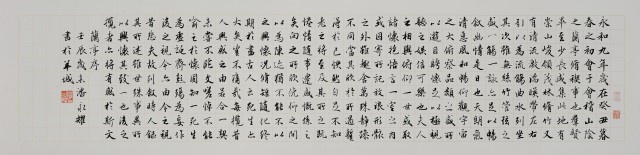 永和九年歲在癸丑暮
春之初會于會稽山陰
之蘭亭修禊事也羣賢
畢至少長咸集此地有
崇山峻領茂林脩竹又
有清流激湍暎帶左右
引以為流觴曲水列坐
其次雖無絲竹管弦之
盛一觴一詠亦足以暢
敘幽情是日也天朗氣
清惠風和暢仰觀宇宙
之大俯察品類之盛所
以遊目騁懷足以極視
聽之娛信可樂也夫人
之相與俯仰一世或取
諸懷抱悟言一室之內
或因寄所託放浪形骸
之外雖趣舍萬殊靜躁
不同當其欣於所遇暫
得於己快然自足不知
老之將至及其所之既
惓情隨事遷感慨係之
矣向之所欣俛仰之間
以為陳迹猶不能不以
之興懷況脩短隨化終
期於盡古人云死生亦
大矣豈不痛哉每攬昔
人興感之由若合一契
未嘗不臨文嗟悼不能
喻之於懷固知一死生
為虛誕齊彭殤為妄作
後之視今亦由今之視
昔悲夫故列敘時人錄
其所述雖世殊事異所
以興懷其致一也後之
攬者亦將有感於斯文
蘭亭序
壬辰歲末潘耀
書於羊城